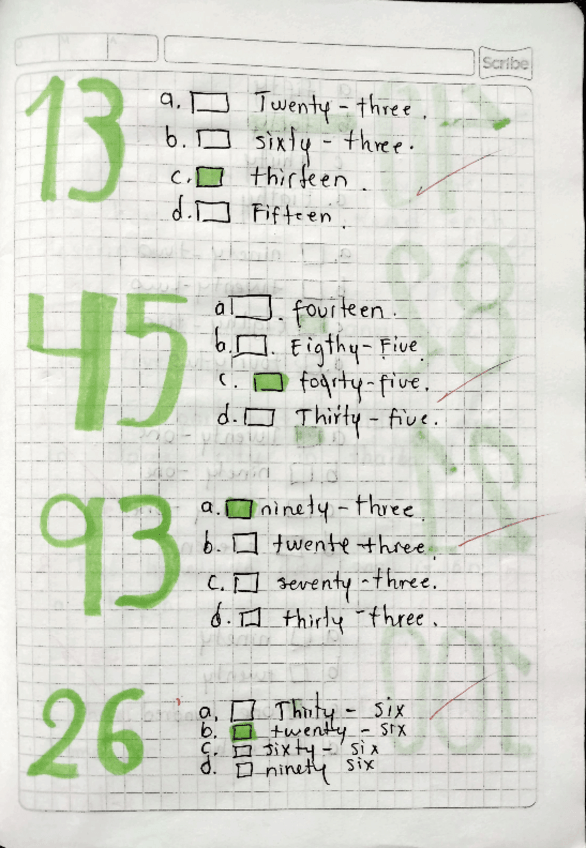 Scribe
13
a. Twenty - three.
b. sixty - three.
c. thirteen.
d. Fifteen.
45
a. fourteen.
b. Eigthy - Five.
c. fourty - five.
d. Thirty - five.
93
a. ninety - three.
b. twente - three.
c. seventy - three.
d. thirty - three.
26
a. Thirty - six
b. twenty - six
c. sixty - six
d. ninety six